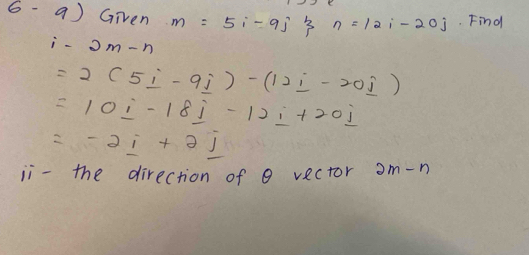 6 - a) Given m = 5i - 9j & n = 12i - 20j . Find
i - 2m - n
= 2 (5i - 9j) - (12i - 20j)
= 10i - 18j - 12i + 20j
= -2i + 2j
ii - the direction of θ vector 2m - n